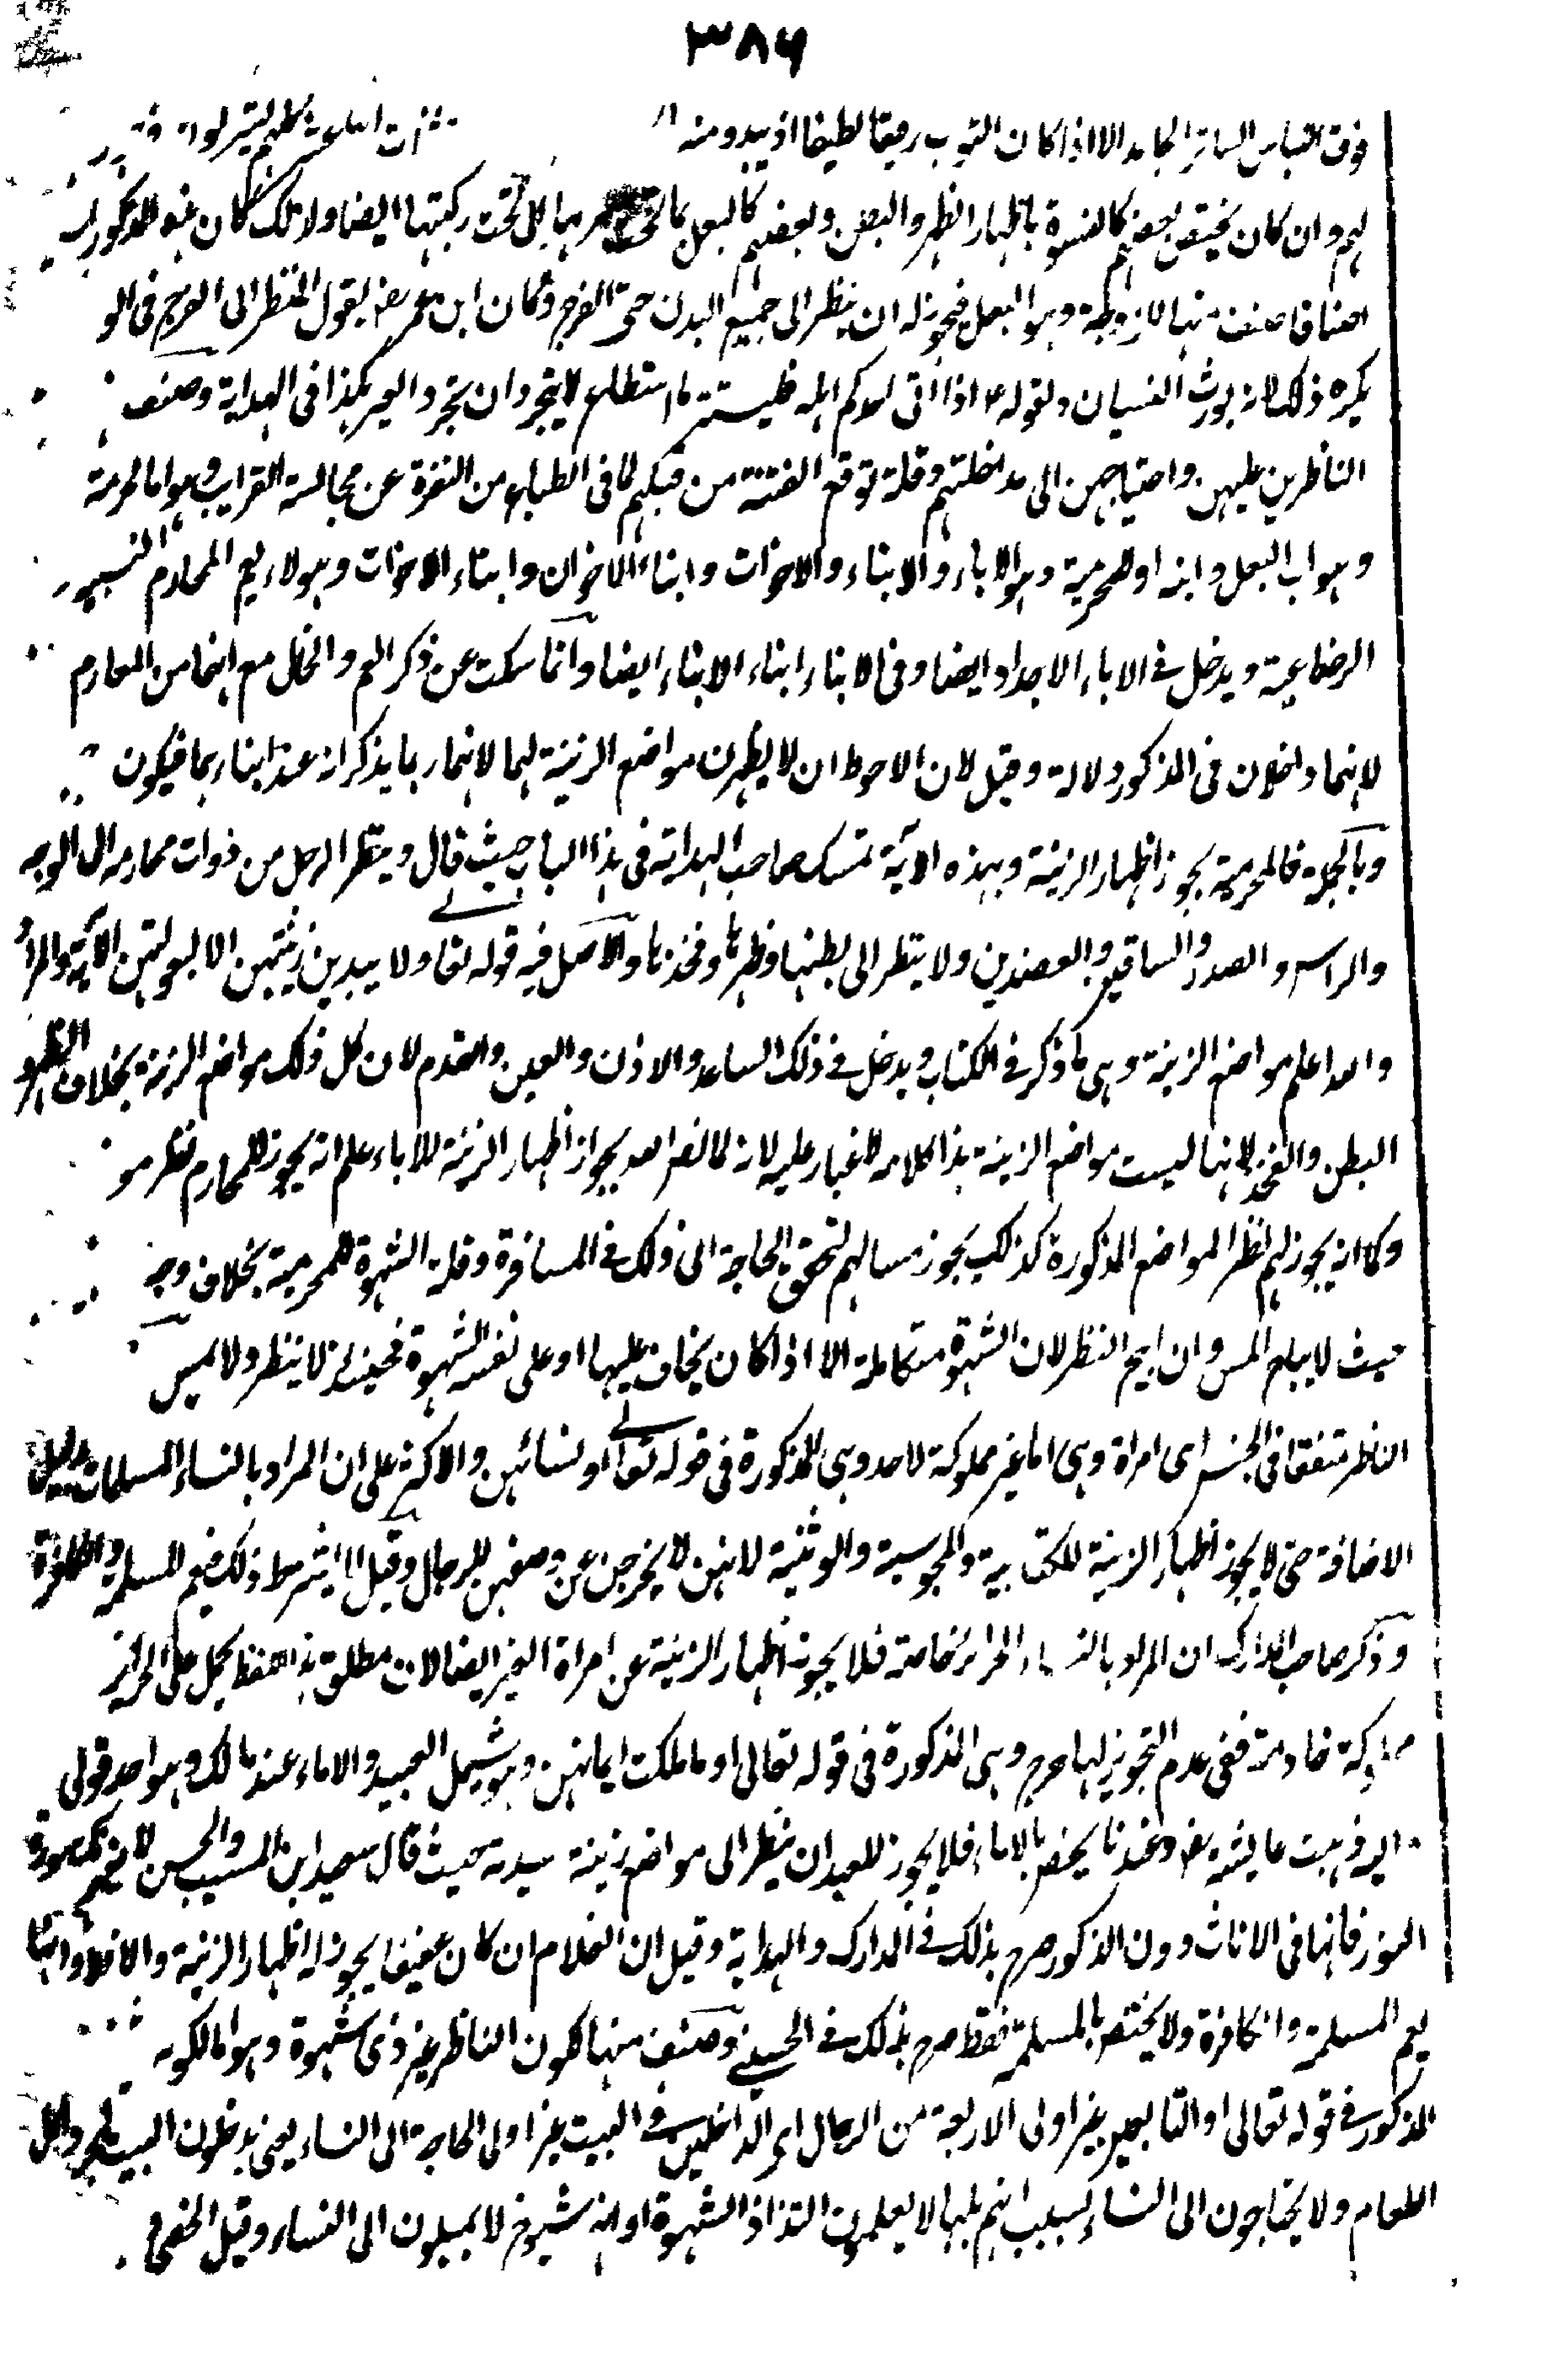 ٣٨٦
فوق اللباس الساتر الجامد الا اذا كان الثوب رقيقا لطيفا اذ يبدو منه
لهم وان كان يختص بعضهم كالنسوة باظهار الظهر والبطن وبعضهم كالبعل بما تحت ركبتها ايضا ولذلك كان المذكور
اصنافا صنف منها لازوجة وهو البعل فيجوز له ان ينظر الى جميع البدن حتى الفرج وكان ابن عمر رض يقول المنظر الى الفرج في الو
يكره ذلك لانه يورث النسيان ولقوله ع اذا اتى احدكم اهله فليستتر ما استطاع لا يتجردان تجرد العير هكذا في الهداية وصنف
الناظرين عليهن واحتياجهن الى مداخلتهم وقلة توقع الفتنة من قبلهم لما في الطباع من النفرة عن مجالسة القرايب وهو اما لحرمة
وهو اب البعل وابنه او للمحرمية وهو الاباء والابناء والاخوات وابناء الاخوان وابناء الاخوات وهولاء يعم المحارم النسبية
الرضاعية ويدخل في الاباء الاجداد ايضا وفي الابناء ابناء الابناء ايضا وانما سكت عن ذكر العم والخال مع انهما من المحارم
لانهما داخلان في المذكور دلالة وقيل لان الاحوط ان لا يظهرن مواضع الزينة لهما لانهما ربما يذكرانه عند ابنائهما فيكون
وبالجملة فالمحرمية يجوز اظهار الزينة وبهذه الآية تمسك صاحب الهداية في هذا الباب حيث قال وينظر الرجل من ذوات محارمه الى الوجه
والراس والصدر والساقين والعضدين ولا ينظر الى بطنها وظهرها وفخذها والاصل فيه قوله تعالى ولا يبدين زينتهن الا لبعولتهن الآية والمراد
والله اعلم مواضع الزينة وهي ما ذكر في الكتاب ويدخل في ذلك الساعد والاذن والعين والقدم لان كل ذلك مواضع الزينة بخلاف الظهر
البطن والفخذ لانها ليست مواضع الزينة هذا كلامه لا غبار عليه لانه لما نص الله بجواز اظهار الزينة للاباء علم انه يجوز للمحارم نظر مو
وكما انه يجوز لهم نظر المواضع المذكورة كذلك يجوز مسها لهم لتحقق الحاجة الى ذلك في المسافرة وقلة الشهوة للمحرمية بخلاف وجه
حيث لا يباح المس وان ابيح النظر لان الشهوة متكاملة الا اذا كان يخاف عليها او على نفسه الشهوة فحينئذ لا ينظر ولا يمس
الناظر متفقا في الجنس اى امراة وهي اما غير مملوكة لاحد وهي المذكورة في قوله تعالى او نسائهن والاكثر على ان المراد بالنساء المسلمات بدليل
الاضافة حتى لا يجوز اظهار الزينة للكتابية والمجوسية والوثنية لانهن لا يخرجن عن وصفهن للرجال وقيل لا يشترط ذلك فيعم المسلمة والكافرة
وذكر صاحب المدارك ان المراد بالنساء الحرائر خاصة فلا يجوز اظهار الزينة عن امراة الغير ايضا لان مطلق هذا اللفظ يحمل على الحرائر
مملوكة خادمة ففي عدم التجويز لها حرج وهي المذكورة في قوله تعالى او ما ملكت ايمانهن وهو يشمل العبيد والاماء عند مالك وهو احد قولي
اليه ذهبت عايشة رض وعندنا يختص بالاماء فلا يجوز للعبد ان ينظر الى مواضع زينة سيدته حيث قال سعيد ابن المسيب والحسن لا تغرنكم سورة
النور فانها في الاناث دون الذكور صرح بذلك في المدارك والهداية وقيل ان الغلام ان كان عفيفا يجوز له اظهار الزينة والا فلا وانها
يعم المسلمة والكافرة ولا يختص بالمسلمة فقط صرح بذلك في الحسيني وصنف منها لكون الناظر غير ذى شهوة وهو اما لكونه
المذكور في قوله تعالى او التابعين غير اولى الاربة من الرجال اى الداخلين في البيت غير اولى الحاجة الى النساء يعني يدخلون البيت لاجل
الطعام ولا يحتاجون الى النساء بسبب انهم بلها لا يعلمون التذاذ الشهوة او انهم شيوخ لا يميلون الى النساء وقيل الخصي